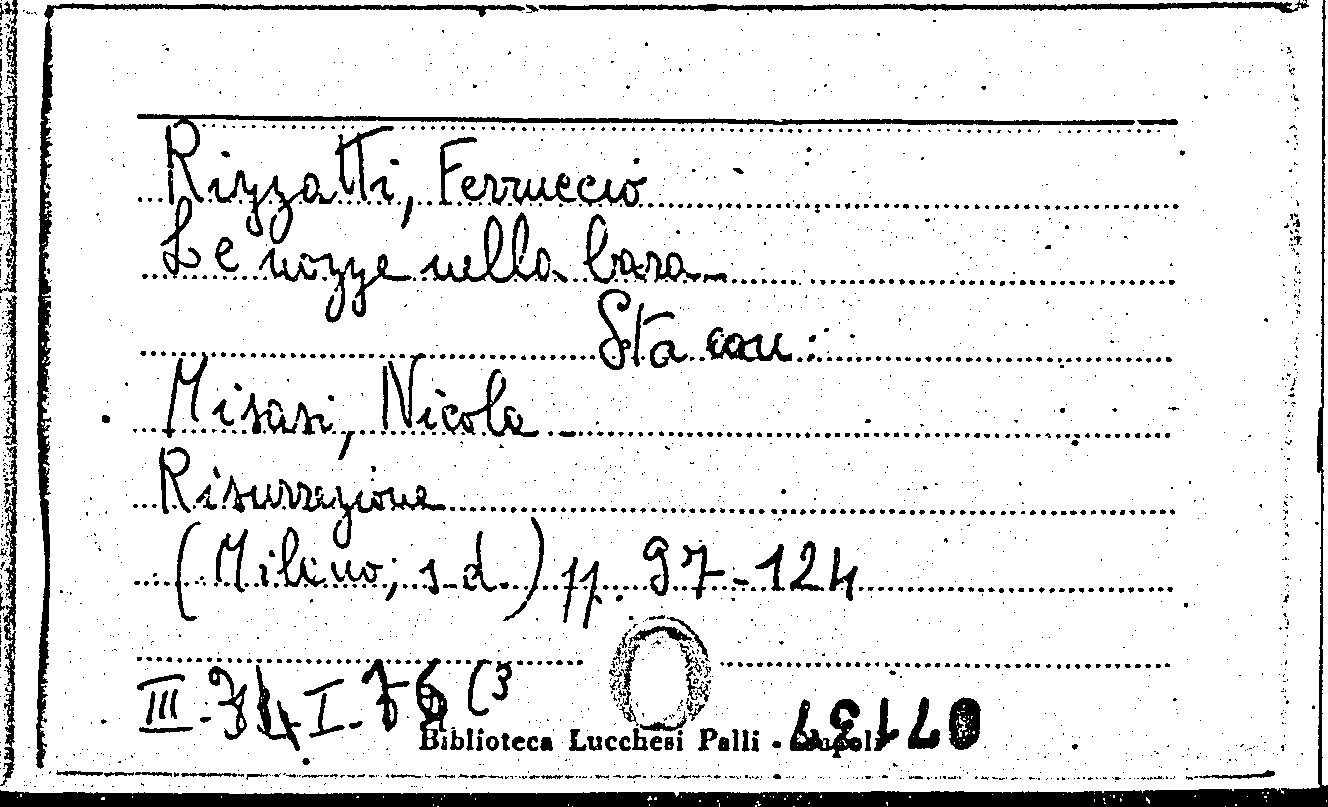 Rizzatti, Ferruccio
Le nozze nella bara
Sta con:
Misasi, Nicola
Risurrezione
(Milano; s. d.) pp. 97-124
III I (3
Biblioteca Lucchesi Palli - Napoli